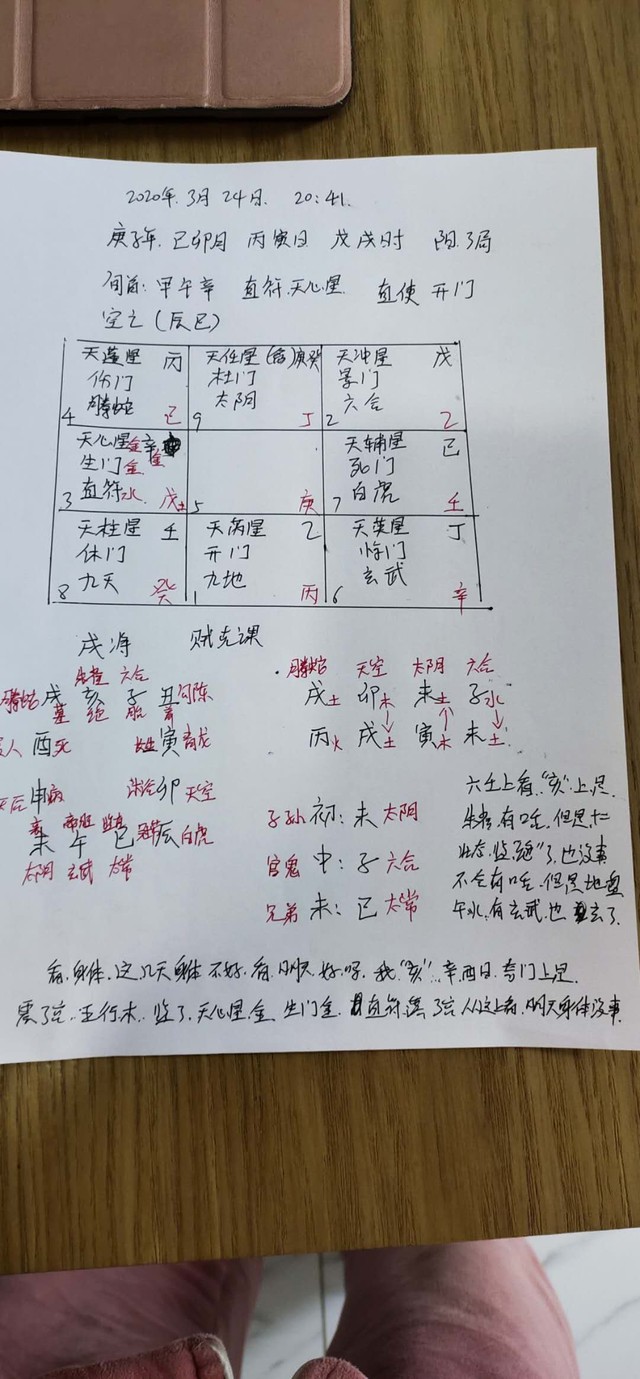 2020年.3月24日. 20:41.
庚子年.己卯月 丙寅日 戊戌时 阳.3局
旬首:甲午辛 直符.天心星. 直使 开门
空亡(辰巳)
天蓬星 丙 天任星 癸 天冲星 戊
伤门 杜门 景门
螣蛇 太阴 六合
4 己 9 丁 2 乙
天心星金 辛金 天辅星 己
生门金 死门
直符水 白虎
3 戊土 5 庚 7 壬
天柱星 壬 天芮星 乙 天英星 丁
休门 开门 惊门
九天 九地 玄武
8 癸 1 丙 6 辛
戌净 贼克课
朱雀 六合
螣蛇戌 亥 子 丑勾陈
墓 绝 胎 养
人酉死 长生寅青龙
天后申病 沐浴卯天空
衰 帝旺 临官
未 午 巳冠带辰白虎
太阴 玄武 太常
螣蛇 天空 太阴 六合
戌土 卯木 未土 子水
丙火 戌土 寅木 未土
子孙 初:未 太阴
官鬼 中:子 六合
兄弟 末:巳 太常
六壬上看."亥"上是.
朱雀.有啥.但是十二
状态.临"绝"了.也没事
不会有啥.但是地盘
午火.有玄武.也 去了.
看.身体.这几天身体 不好.看.明天 好吗. 我."亥".辛酉日.奇门上是.
震3宫.五行木.临了.天心星.金 生门金. 直符.落 3宫 从这上看.明天身体没事.